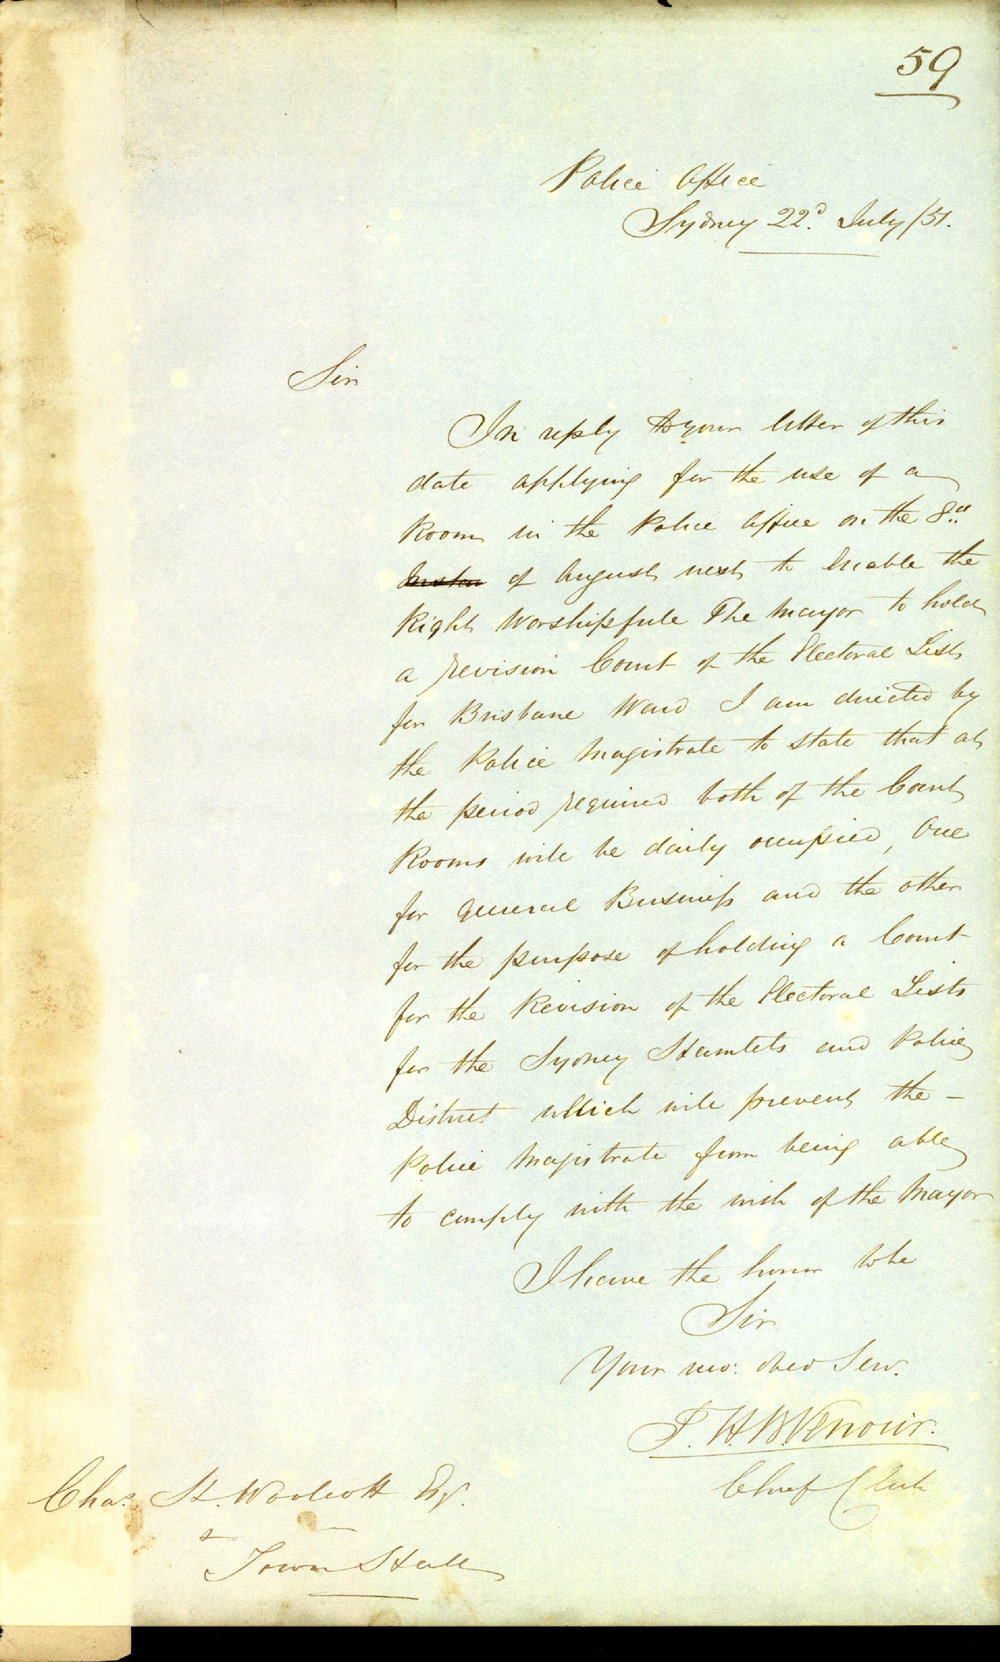 59
Police Office
Sydney 22d. July/51.
Sir
In reply to your letter of this
date applying for the use of a
Room in the Police Office on the 8th
of August next to Enable the
Right Worshipfull The Mayor to hold
a revision Court of the Electoral List
for Brisbane Ward I am directed by
the Police Magistrate to state that at
the period required both of the Court
Rooms will be daily occupied, One
for general Business and the other
for the purpose of holding a Court
for the Revision of the Electoral Lists
for the Sydney Hamlets and Police
District which will prevent the -
Police Magistrate from being able
to comply with the wish of the Mayor
I have the honor to be
Sir
Your mo: obed Serv.
Chief Clerk
Chas. H. Woolcott Esqr.
Town Hall